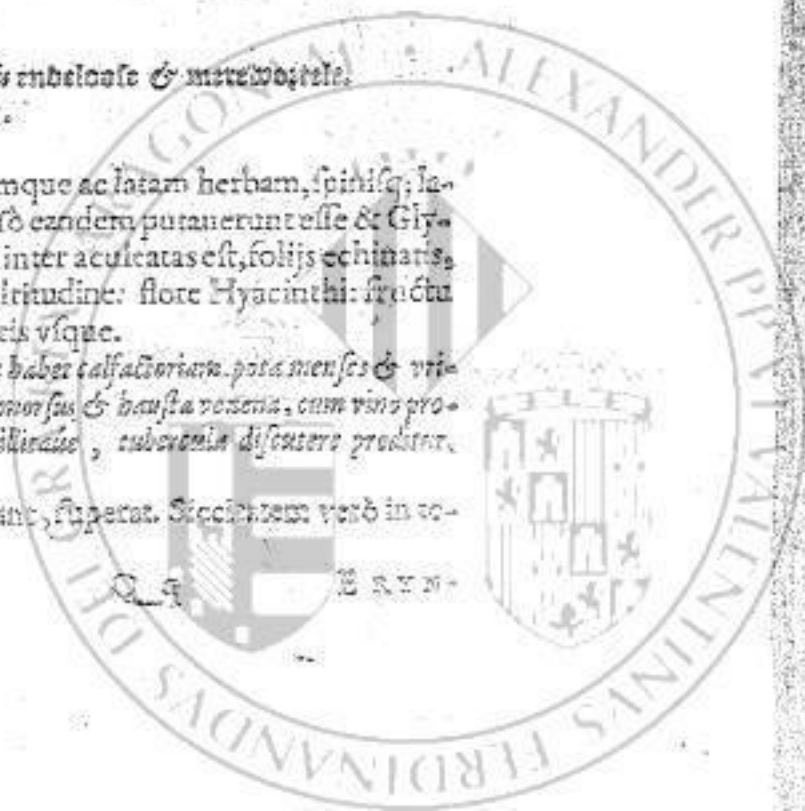 endeloose & 
.
mque ac latam herbam, ſpiniſq; la-
ſò eandem putauerunt eſſe & Gly-
inter aculeatas eſt, folijs echinatis,
ltitudine: flore Hyacinthi: fructu
cis vſque.
habet calfactoriam. pota menſes & vri-
morſus & hauſta venena, cum vino pro-
diſcutere
ant, ſuperat. Siccitatem verò in to-
ERYN-
ALEXANDER PP VI VALENTINVS FERDINANDVS DEI GRATIA ARAGONVM